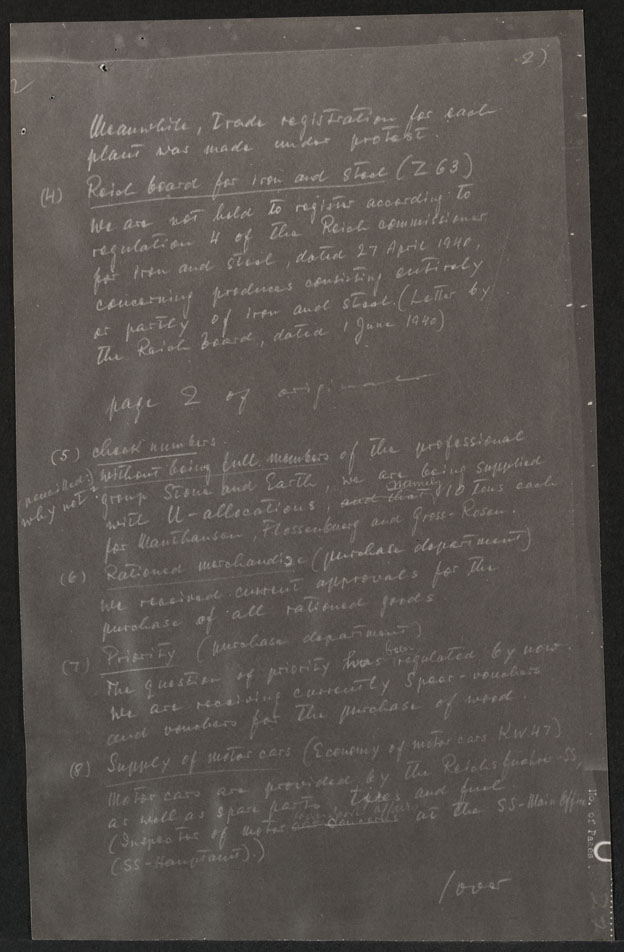 2)
2
Meanwhile, trade registration for each
plant was made under protest.
(4) Reich board for iron and steel (Z 63)
We are not held to register according to
regulation 4 of the Reich commissioner
for iron and steel, dated 27 April 1940,
concerning produces consisting entirely
or partly of iron and steel. (Letter by
the Reich board, dated 1 June 1940)
page 2 of original
(5) check numbers.
pencilled: why not?
without being full members of the professional
group Stone and Earth, we are being supplied
with U-allocations, and that namely 110 tons each
for Mauthausen, Flossenburg and Gross-Rosen.
(6) Rationed merchandize (purchase department)
We received current approvals for the
purchase of all rationed goods
(7) Priority (purchase department)
The question of priority has been regulated by now.
We are receiving currently Speer-vouchers
and vouchers for the purchase of wood.
(8) Supply of motor cars (Economy of motor cars KW 47)
Motor cars are provided by the Reichsfuehrer-SS,
as well as spare parts, tires and fuel
(Inspector of motor at the SS-Main Office
(SS-Hauptamt).)
/over
No. of Pages.